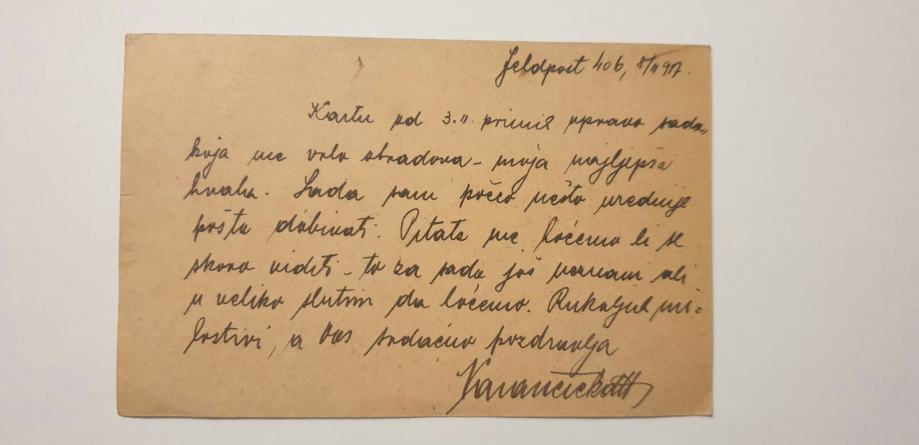 Feldpost 406, 8/II 917.
Kartu od 3.II primil upravo sada,
koja me vrlo obradova - moja najljepša
hvala. Sada sam počeo nešto urednije
poštu dobivati. Pitate me hoćemo li se
skoro viditi - to za sada još neznam ali
u veliko slutim da hoćemo. Rukoljub mi=
lostivi, a Vas srdačno pozdravlja